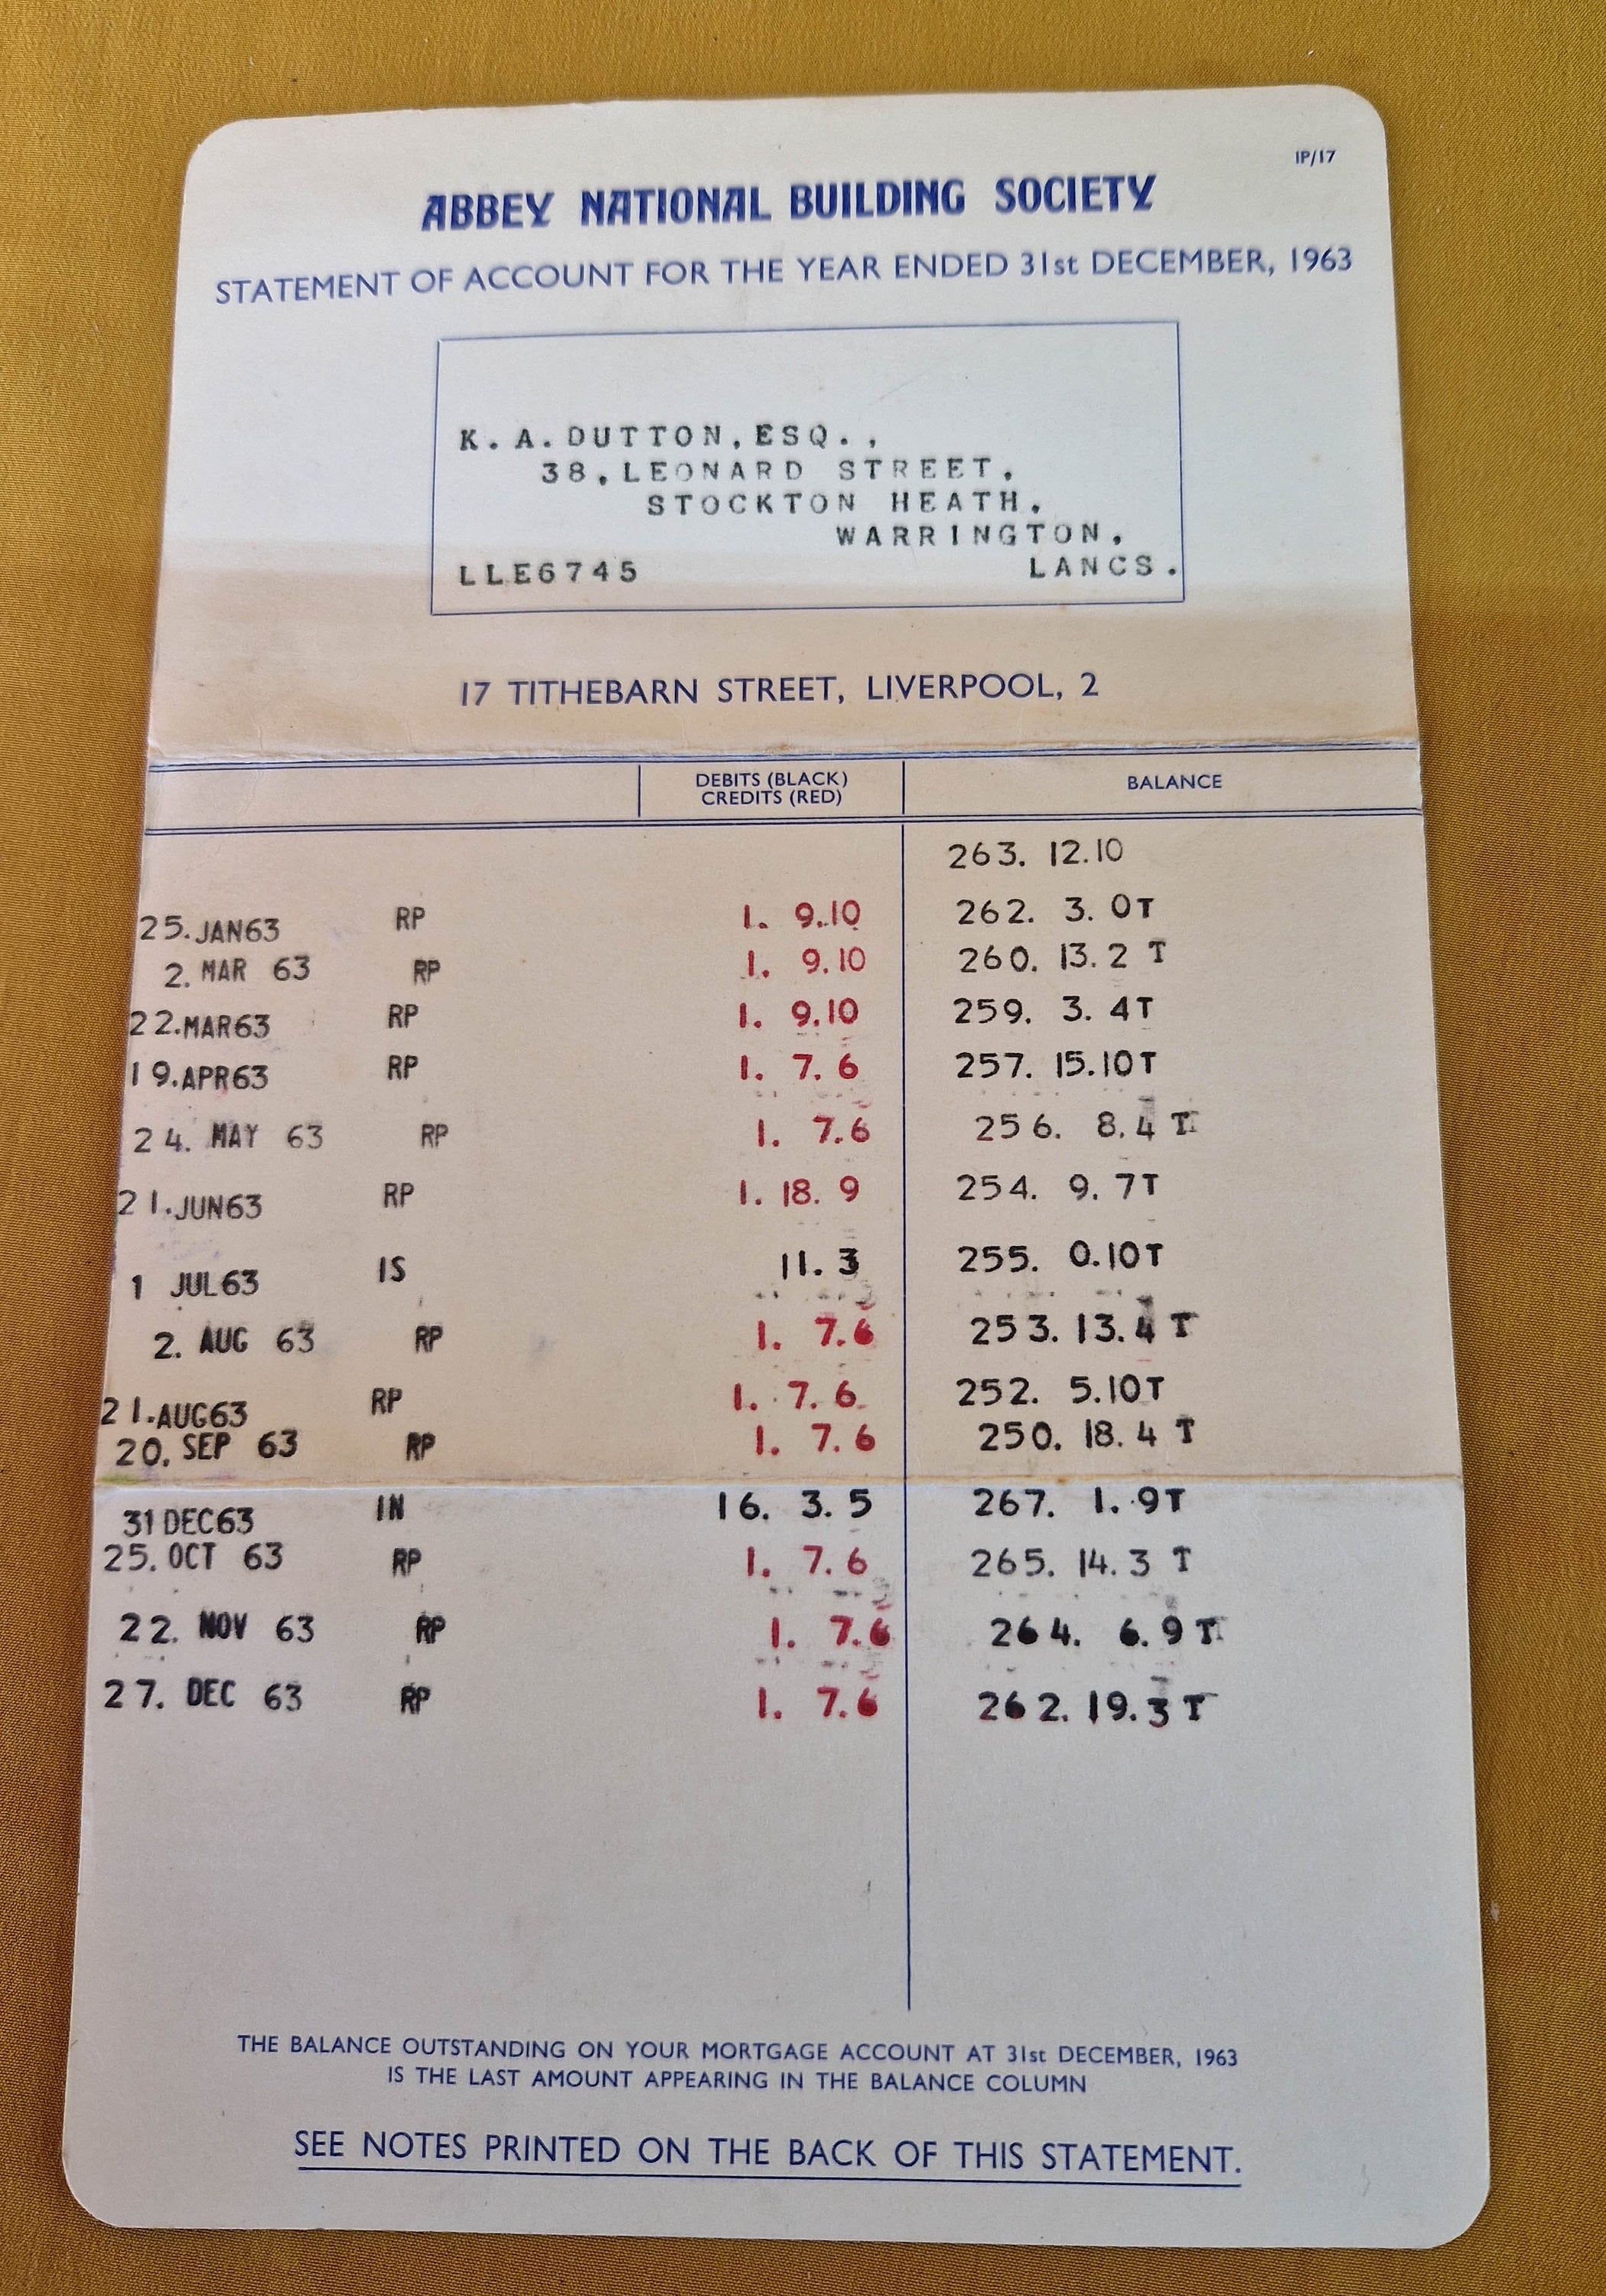 IP/17
ABBEY NATIONAL BUILDING SOCIETY
STATEMENT OF ACCOUNT FOR THE YEAR ENDED 31st DECEMBER, 1963
K. A. DUTTON, ESQ.,
38, LEONARD STREET,
STOCKTON HEATH,
WARRINGTON,
LLE6745 LANCS.
17 TITHEBARN STREET, LIVERPOOL, 2
DEBITS (BLACK)
CREDITS (RED)
BALANCE
263. 12.10
25.JAN63 RP 1. 9.10 262. 3. 0T
2. MAR 63 RP 1. 9.10 260. 13. 2 T
22.MAR63 RP 1. 9.10 259. 3. 4T
19.APR63 RP 1. 7. 6 257. 15.10T
24. MAY 63 RP 1. 7.6 256. 8. 4 T
21.JUN63 RP 1. 18. 9 254. 9. 7T
1 JUL63 IS 11. 3 255. 0.10T
2. AUG 63 RP 1. 7.6 253. 13. 4 T
21.AUG63 RP 1. 7. 6 252. 5.10T
20. SEP 63 RP 1. 7. 6 250. 18. 4 T
31 DEC63 IN 16. 3. 5 267. 1. 9T
25. OCT 63 RP 1. 7. 6 265. 14. 3 T
22. NOV 63 RP 1. 7.6 264. 6. 9 T
27. DEC 63 RP 1. 7.6 262. 19. 3 T
THE BALANCE OUTSTANDING ON YOUR MORTGAGE ACCOUNT AT 31st DECEMBER, 1963
IS THE LAST AMOUNT APPEARING IN THE BALANCE COLUMN
SEE NOTES PRINTED ON THE BACK OF THIS STATEMENT.